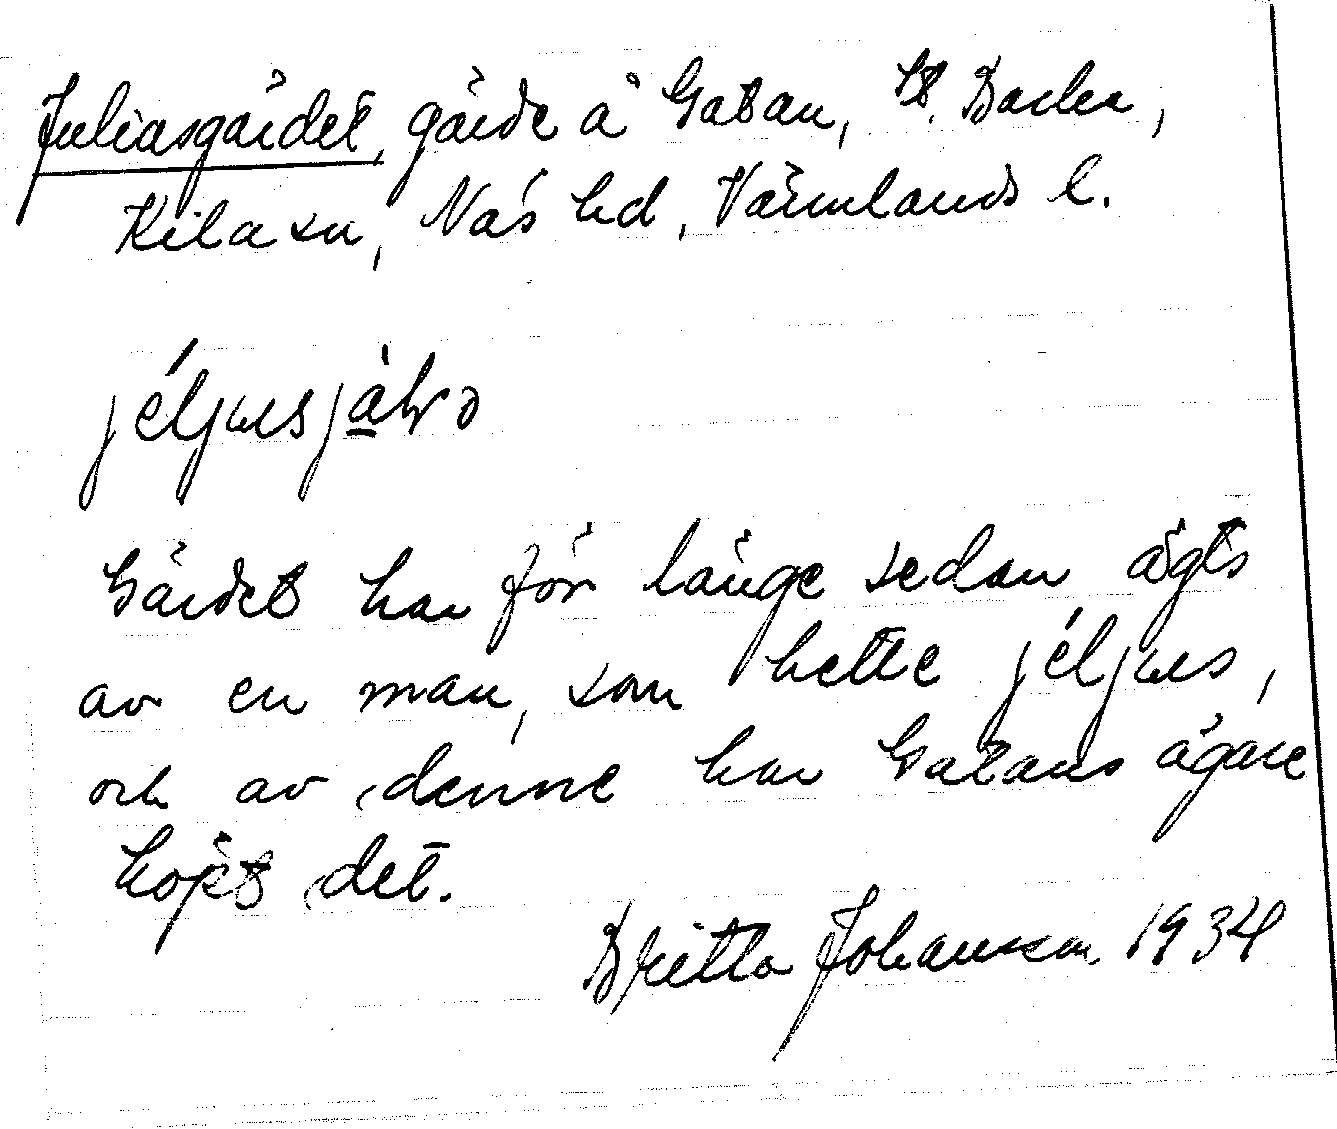 Juliasgärdet, gärde å Gatan, St. Backa,
Kila sn, Näs hd, Värmlands l.
jéljusjàhrə
Gärdet har för länge sedan ägts
av en man, som hette jéljus,
och av denne har Gatans ägare
köpt det.
Britta Johansson 1934